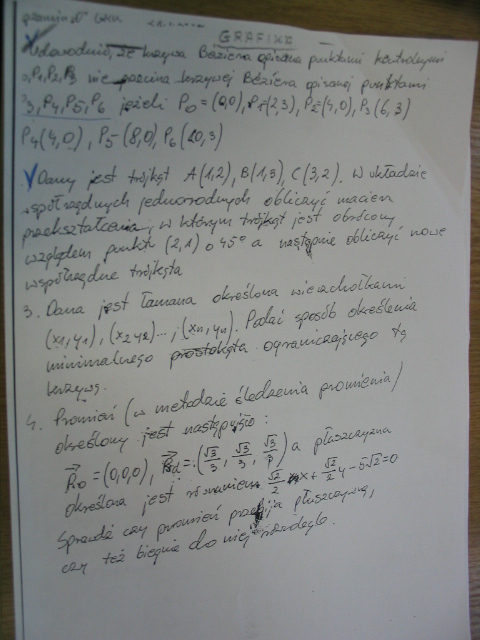 GRAFIKA
Udowodnić, że krzywa Béziera opisana punktami kontrolnymi
P1, P2, P3 nie przecina krzywej Béziera opisanej punktami
P3, P4, P5, P6 jeżeli P0=(0,0), P1=(2,3), P2=(4,0), P3(6,3)
P4(4,0), P5=(8,0), P6(20,3)
Dany jest trójkąt A(1,2), B(1,3), C(3,2). W układzie
współrzędnych jednorodnych obliczyć macierz
przekształcenia, w którym trójkąt jest obrócony
względem punktu (2,1) o 45° a następnie obliczyć nowe
współrzędne trójkąta
3. Dana jest łamana określona wierzchołkami
(x1,y1), (x2 y2) ..., (xn, yn). Podać sposób określenia
minimalnego prostokąta ograniczającego tę
krzywą.
4. Promień (w metodzie śledzenia promienia)
określony jest następująco:
R0 = (0,0,0), Rd = (√3/3, √3/3, √3/3) a płaszczyzna
określona jest równaniem √2/2 x + √2/2 y - 5√2 = 0
Sprawdź czy promień przebija płaszczyznę,
czy też biegnie do niej równolegle.